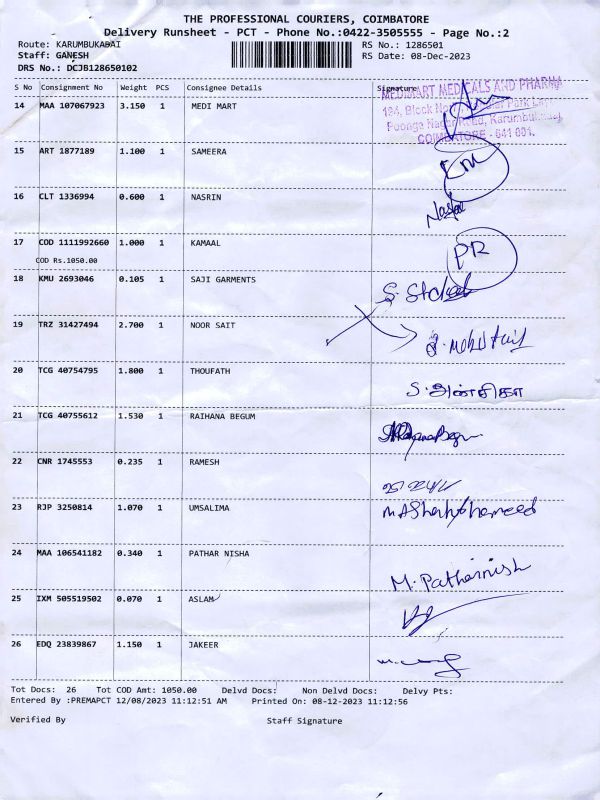 THE PROFESSIONAL COURIERS, COIMBATORE
Delivery Runsheet - PCT - Phone No.:0422-3505555 - Page No.:2
Route: KARUMBUKADAI RS No.: 1286501
Staff: GANESH RS Date: 08-Dec-2023
DRS No.: DCJB128650102
S No Consignment No Weight PCS Consignee Details Signature
MEDIMART MEDICALS AND PHARMA
14 MAA 107067923 3.150 1 MEDI MART
184, Block No. Park
Poonga Nagar Road, Karumbukadai
COIMBATORE - 641 001.
15 ART 1877189 1.100 1 SAMEERA
16 CLT 1336994 0.600 1 NASRIN
17 COD 1111992660 1.000 1 KAMAAL PR
COD Rs.1050.00
18 KMU 2693046 0.105 1 SAJI GARMENTS
19 TRZ 31427494 2.700 1 NOOR SAIT
20 TCG 40754795 1.800 1 THOUFATH
S.
21 TCG 40755612 1.530 1 RAIHANA BEGUM
22 CNR 1745553 0.235 1 RAMESH
23 RJP 3250814 1.070 1 UMSALIMA
24 MAA 106541182 0.340 1 PATHAR NISHA
M. Patharnish
25 IXM 505519502 0.070 1 ASLAM
26 EDQ 23839867 1.150 1 JAKEER
Tot Docs: 26 Tot COD Amt: 1050.00 Delvd Docs: Non Delvd Docs: Delvy Pts:
Entered By :PREMAPCT 12/08/2023 11:12:51 AM Printed On: 08-12-2023 11:12:56
Verified By Staff Signature